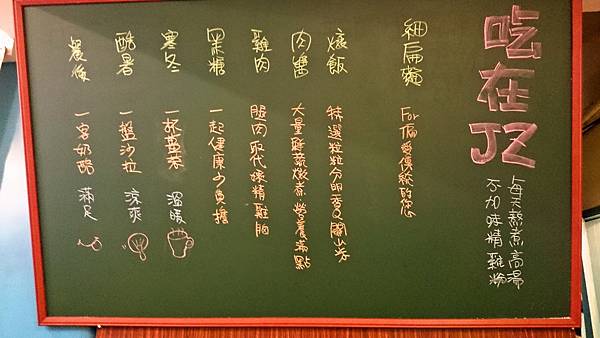 吃在JZ
每天熬煮高湯
不加味精雞粉
細扁麵 For偏愛傳統的您
燉飯 特選粒粒分明義大利米
肉醬 大量鮮蔬燉煮 營養滿點
雞肉 腿肉取代味精雞胸
黑糖 一起健康少負擔
寒冬 一杯薑茶 溫暖
酷暑 一盤沙拉 涼爽
晨後 一客奶酪 滿足